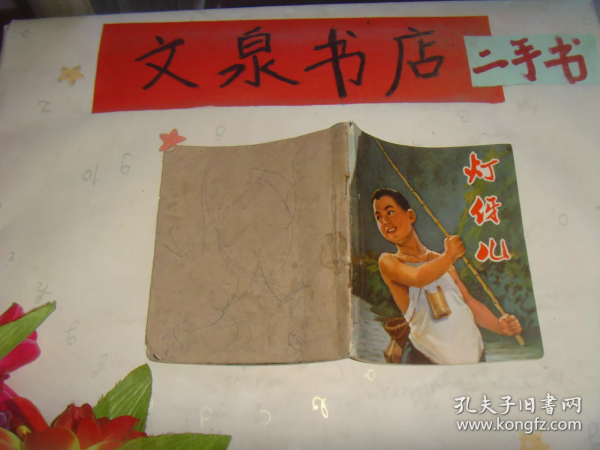 文泉书店
二手书
灯伢儿
孔夫子旧书网
www.kongfz.com